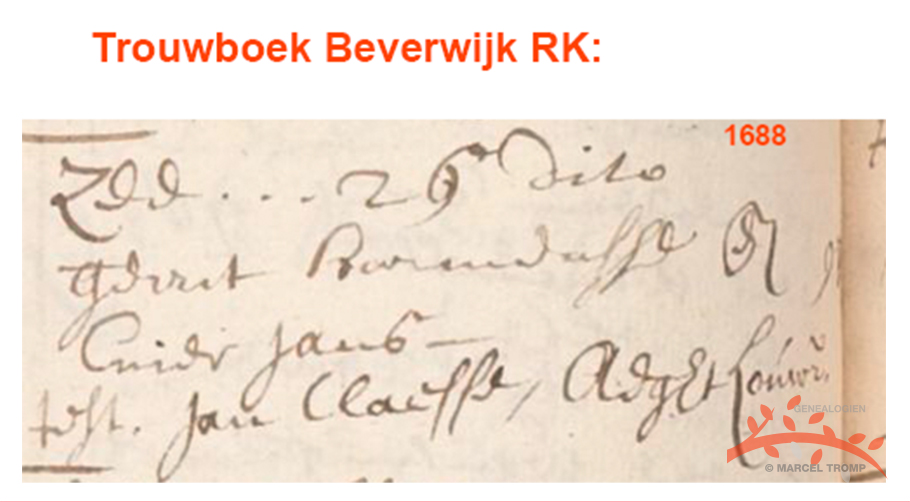 Trouwboek Beverwijk RK:
1688
Edd ... 26 dito
gerrit Barendesse &
jans
test. jan Claesse, Aeght
GENEALOGIEN
© MARCEL TROMP